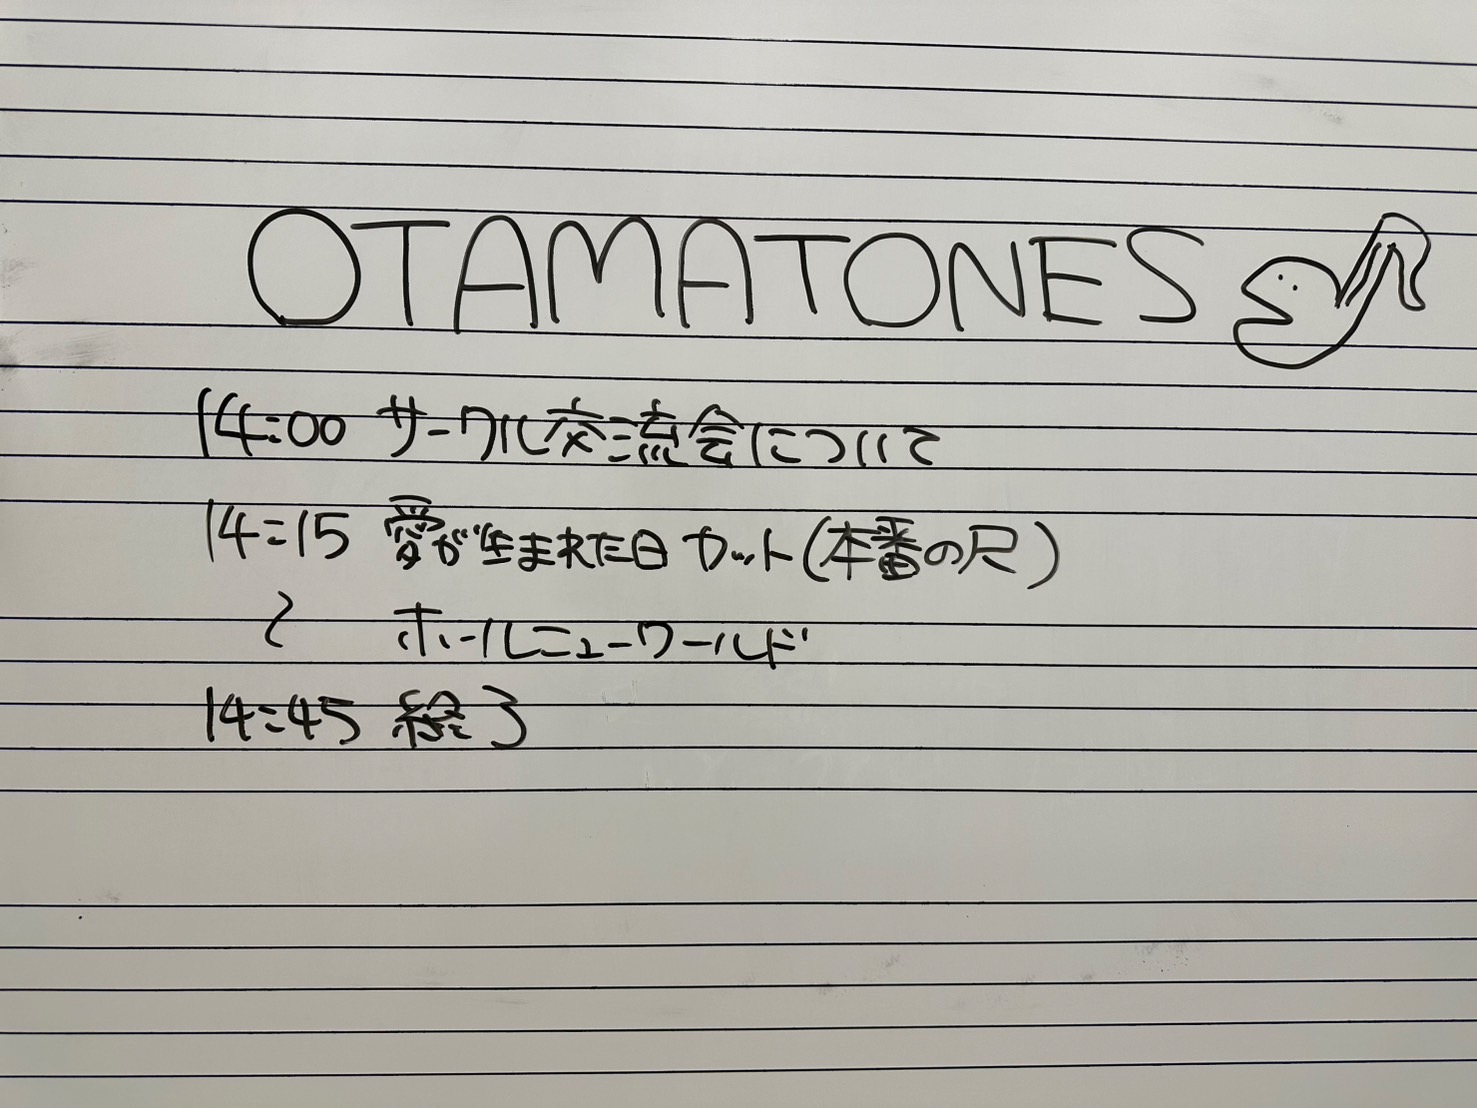 OTAMATONES
14:00 サークル交流会について
14:15 愛が生まれた日 カット(本番の尺)
〜 ホールニューワールド
14:45 終了